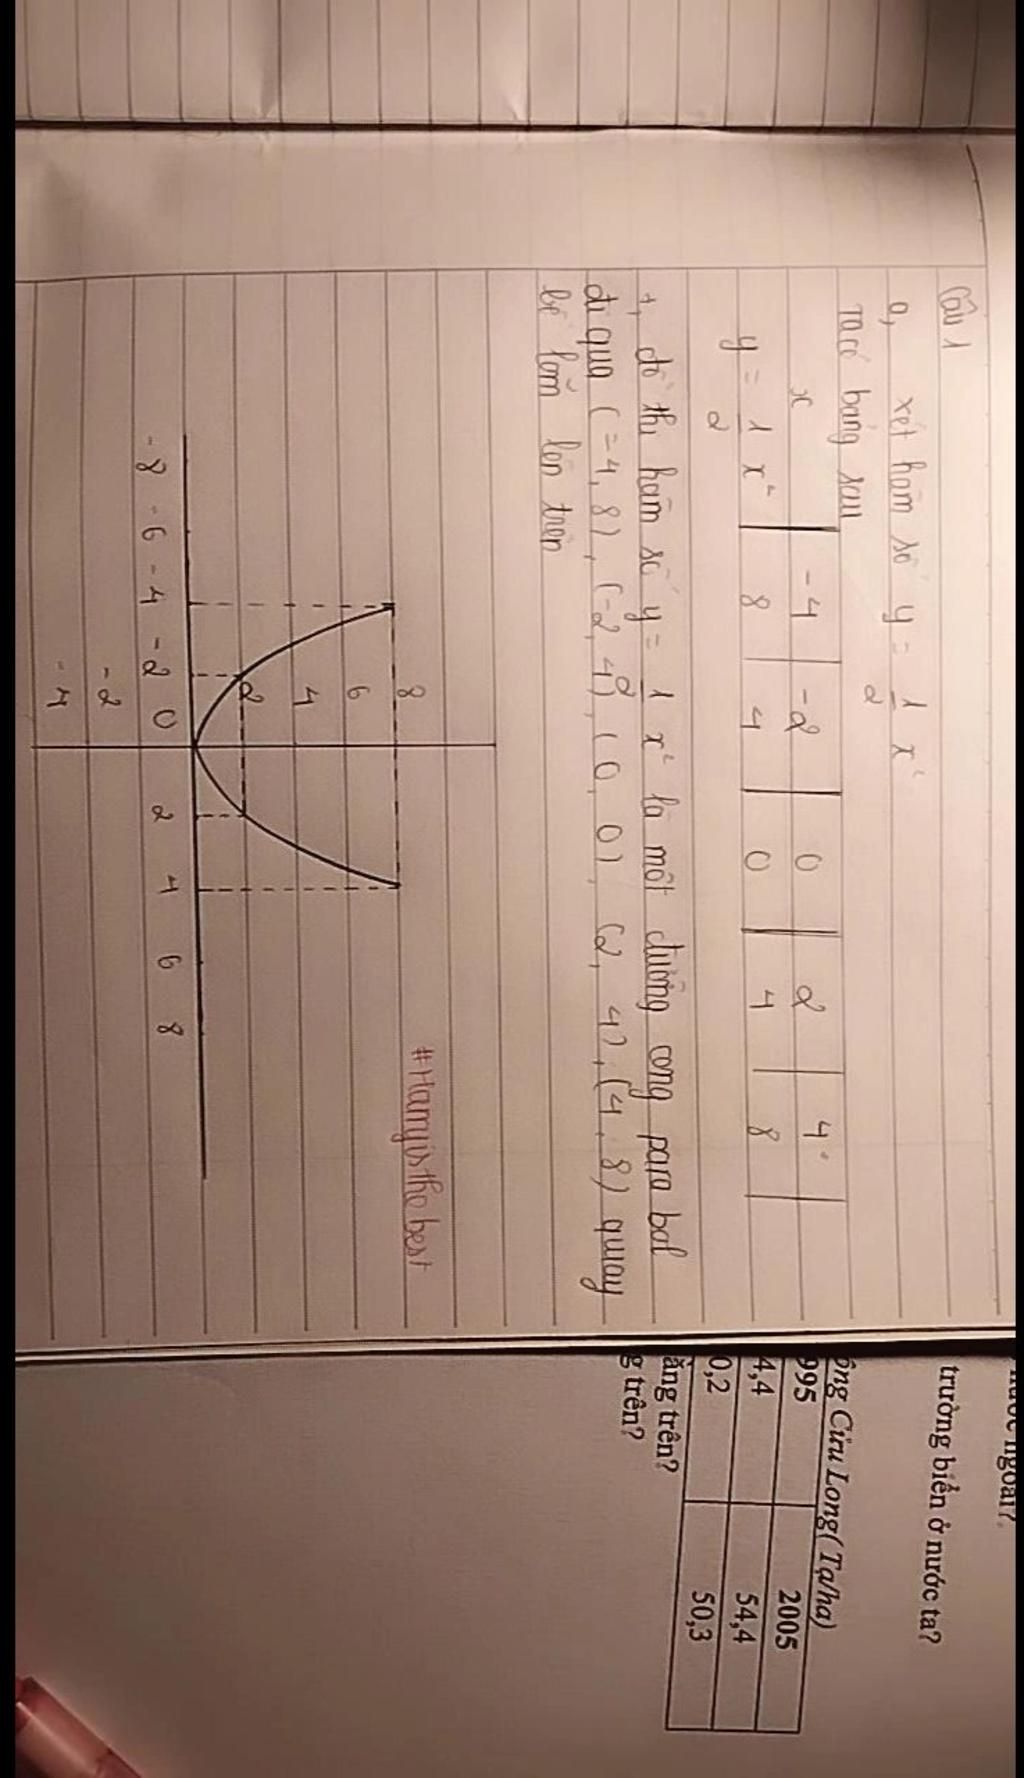 Câu 1
a, xét hàm số y = 1/2 x²
Ta có bảng sau
x | -4 | -2 | 0 | 2 | 4
y = 1/2 x² | 8 | 4 | 0 | 4 | 8
+, đồ thị hàm số y = 1/2 x² là một đường cong para bol
đi qua (=4, 8), (-2, 4), (0, 0), (2, 4), (4, 8) quay
bề lõm lên trên
#Harryisthebest
8
6
4
2
-8 -6 -4 -2 0 2 4 6 8
-2
-4
nước ngoài?
trường biển ở nước ta?
ông Cửu Long( Tạ/ha)
995 2005
4,4 54,4
0,2 50,3
ăng trên?
g trên?